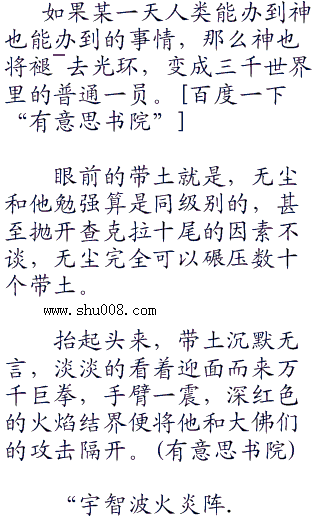 如果某一天人类能办到神
也能办到的事情，那么神也
将褪¯去光环，变成三千世界
里的普通一员。[百度一下
“有意思书院”]
眼前的带土就是，无尘
和他勉强算是同级别的，甚
至抛开查克拉十尾的因素不
谈，无尘完全可以碾压数十
个带土。
www.shu008.com
抬起头来，带土沉默无
言，淡淡的看着迎面而来万
千巨拳，手臂一震，深红色
的火焰结界便将他和大佛们
的攻击隔开。(有意思书院)
“宇智波火炎阵.